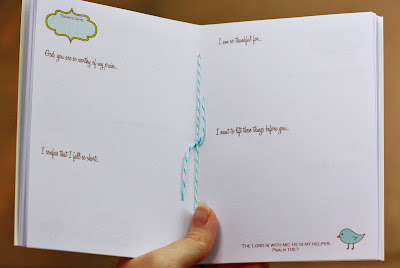 TODAY'S DATE:
God, you are so worthy of my praise...
I confess that I fall so short...
I am so thankful for...
I want to lift these things before you...
THE LORD IS WITH ME; HE IS MY HELPER.
PSALM 118:7